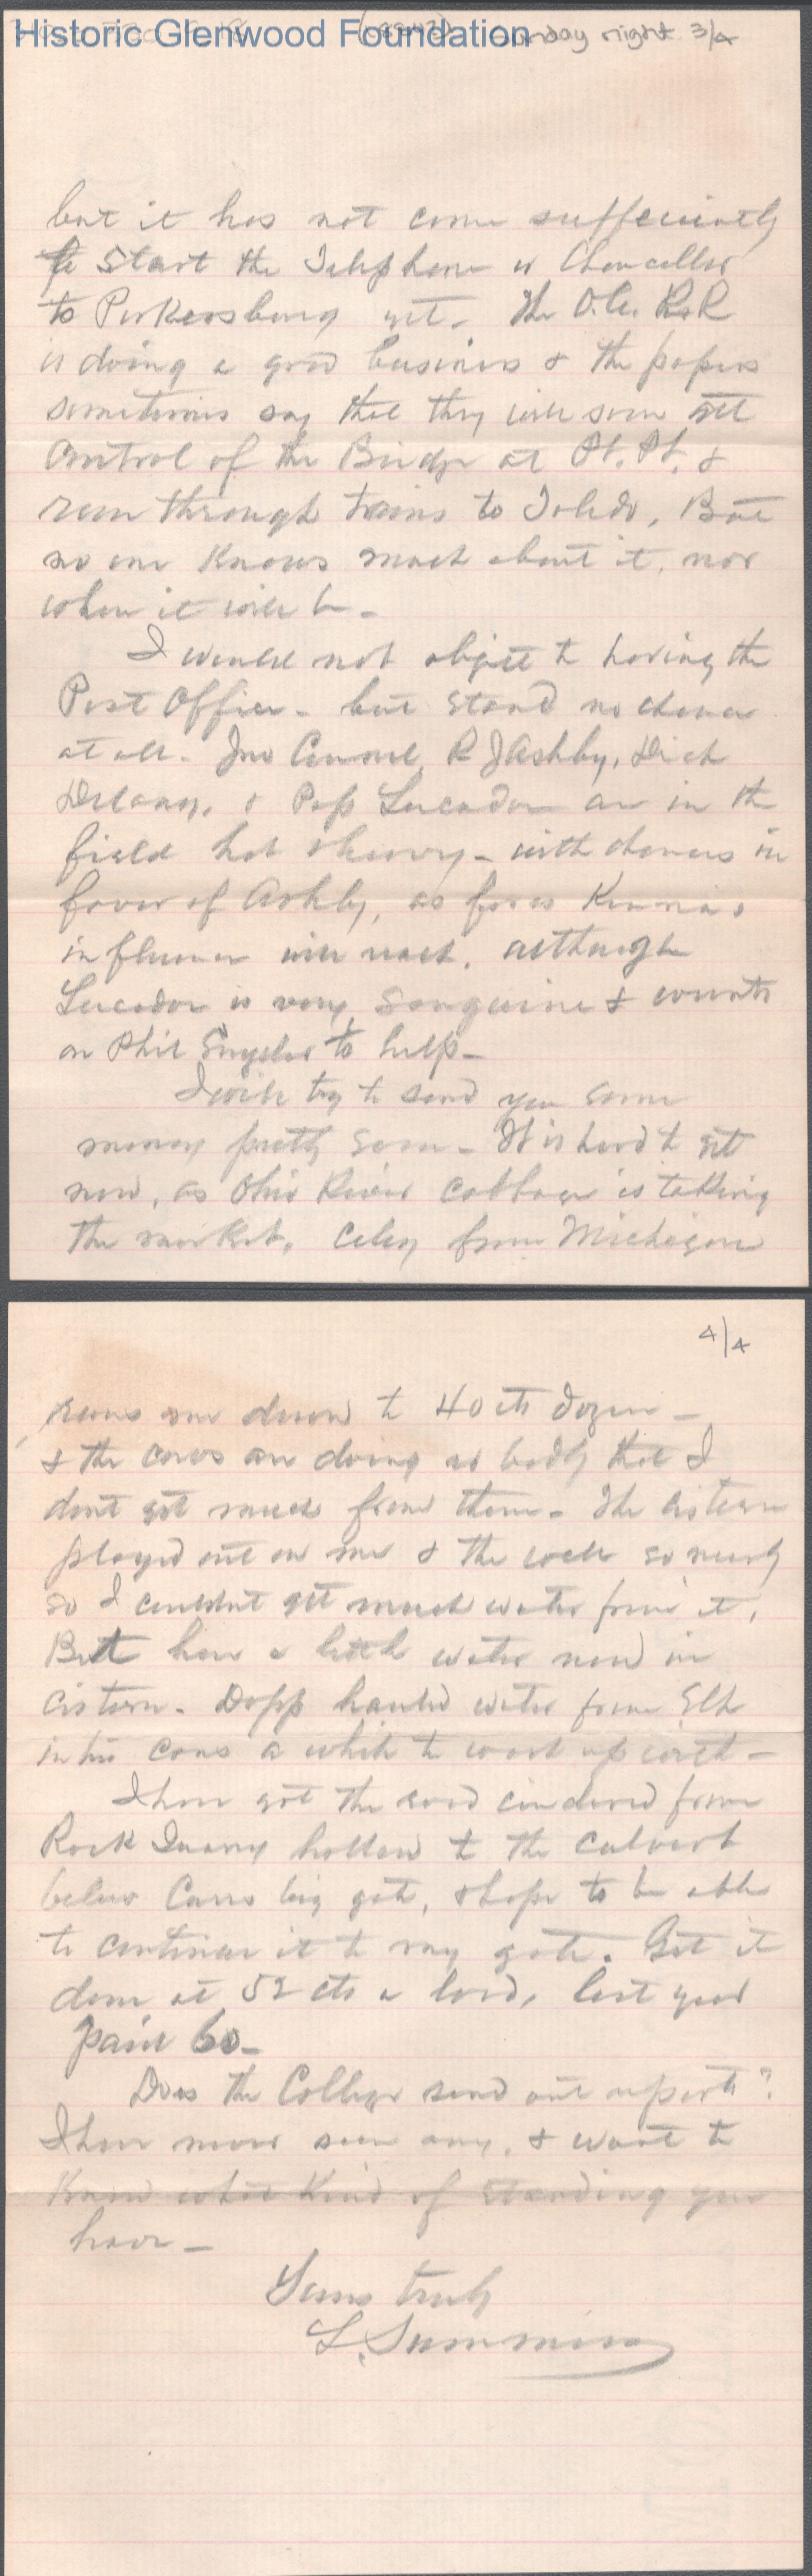 Historic Glenwood Foundation
Sunday night 3/4
but it has not come sufficiently
to Start the Telephone or Chancellor
to Parkersburg yet. The O.C. R.R
is doing a good business & the papers
sometimes say that they will soon get
Control of the Bridge at Pt. Pt. &
run through trains to Toledo, But
no one Knows much about it, nor
when it will be -
I would not object to having the
Post Office - but stand no chance
at all. Jno Connel, R J Ashby, Dick
Delany, & Pap Lucador are in the
field hot & heavy - with chances in
favor of Ashby, as far as Kenna's
influence will reach, although
Lucador is very sanguine & counts
on Phil Snyder to help -
I will try to send you some
money pretty soon - It is hard to get
now, as Ohio River Cabbage is taking
the market. Celery from Michigan
4/4
runs me down to 40 cts dozen -
& the cows are doing so badly that I
dont get much from them - The cistern
played out on me & the well so nearly
so I couldnt get much water from it,
But have a little water now in
cistern - Dopp hauled water from Elk
in his cans a while to wash up with -
I have got the road cindered from
Rock Quarry hollow to the culvert
below Carrs big gate, & hope to be able
to continue it to my gate. Got it
done at 52 cts a load, last year
paid 60 -
Does the College send out reports?
I have never seen any, & want to
Know what Kind of standing you
have -
Yours truly
L. Summers